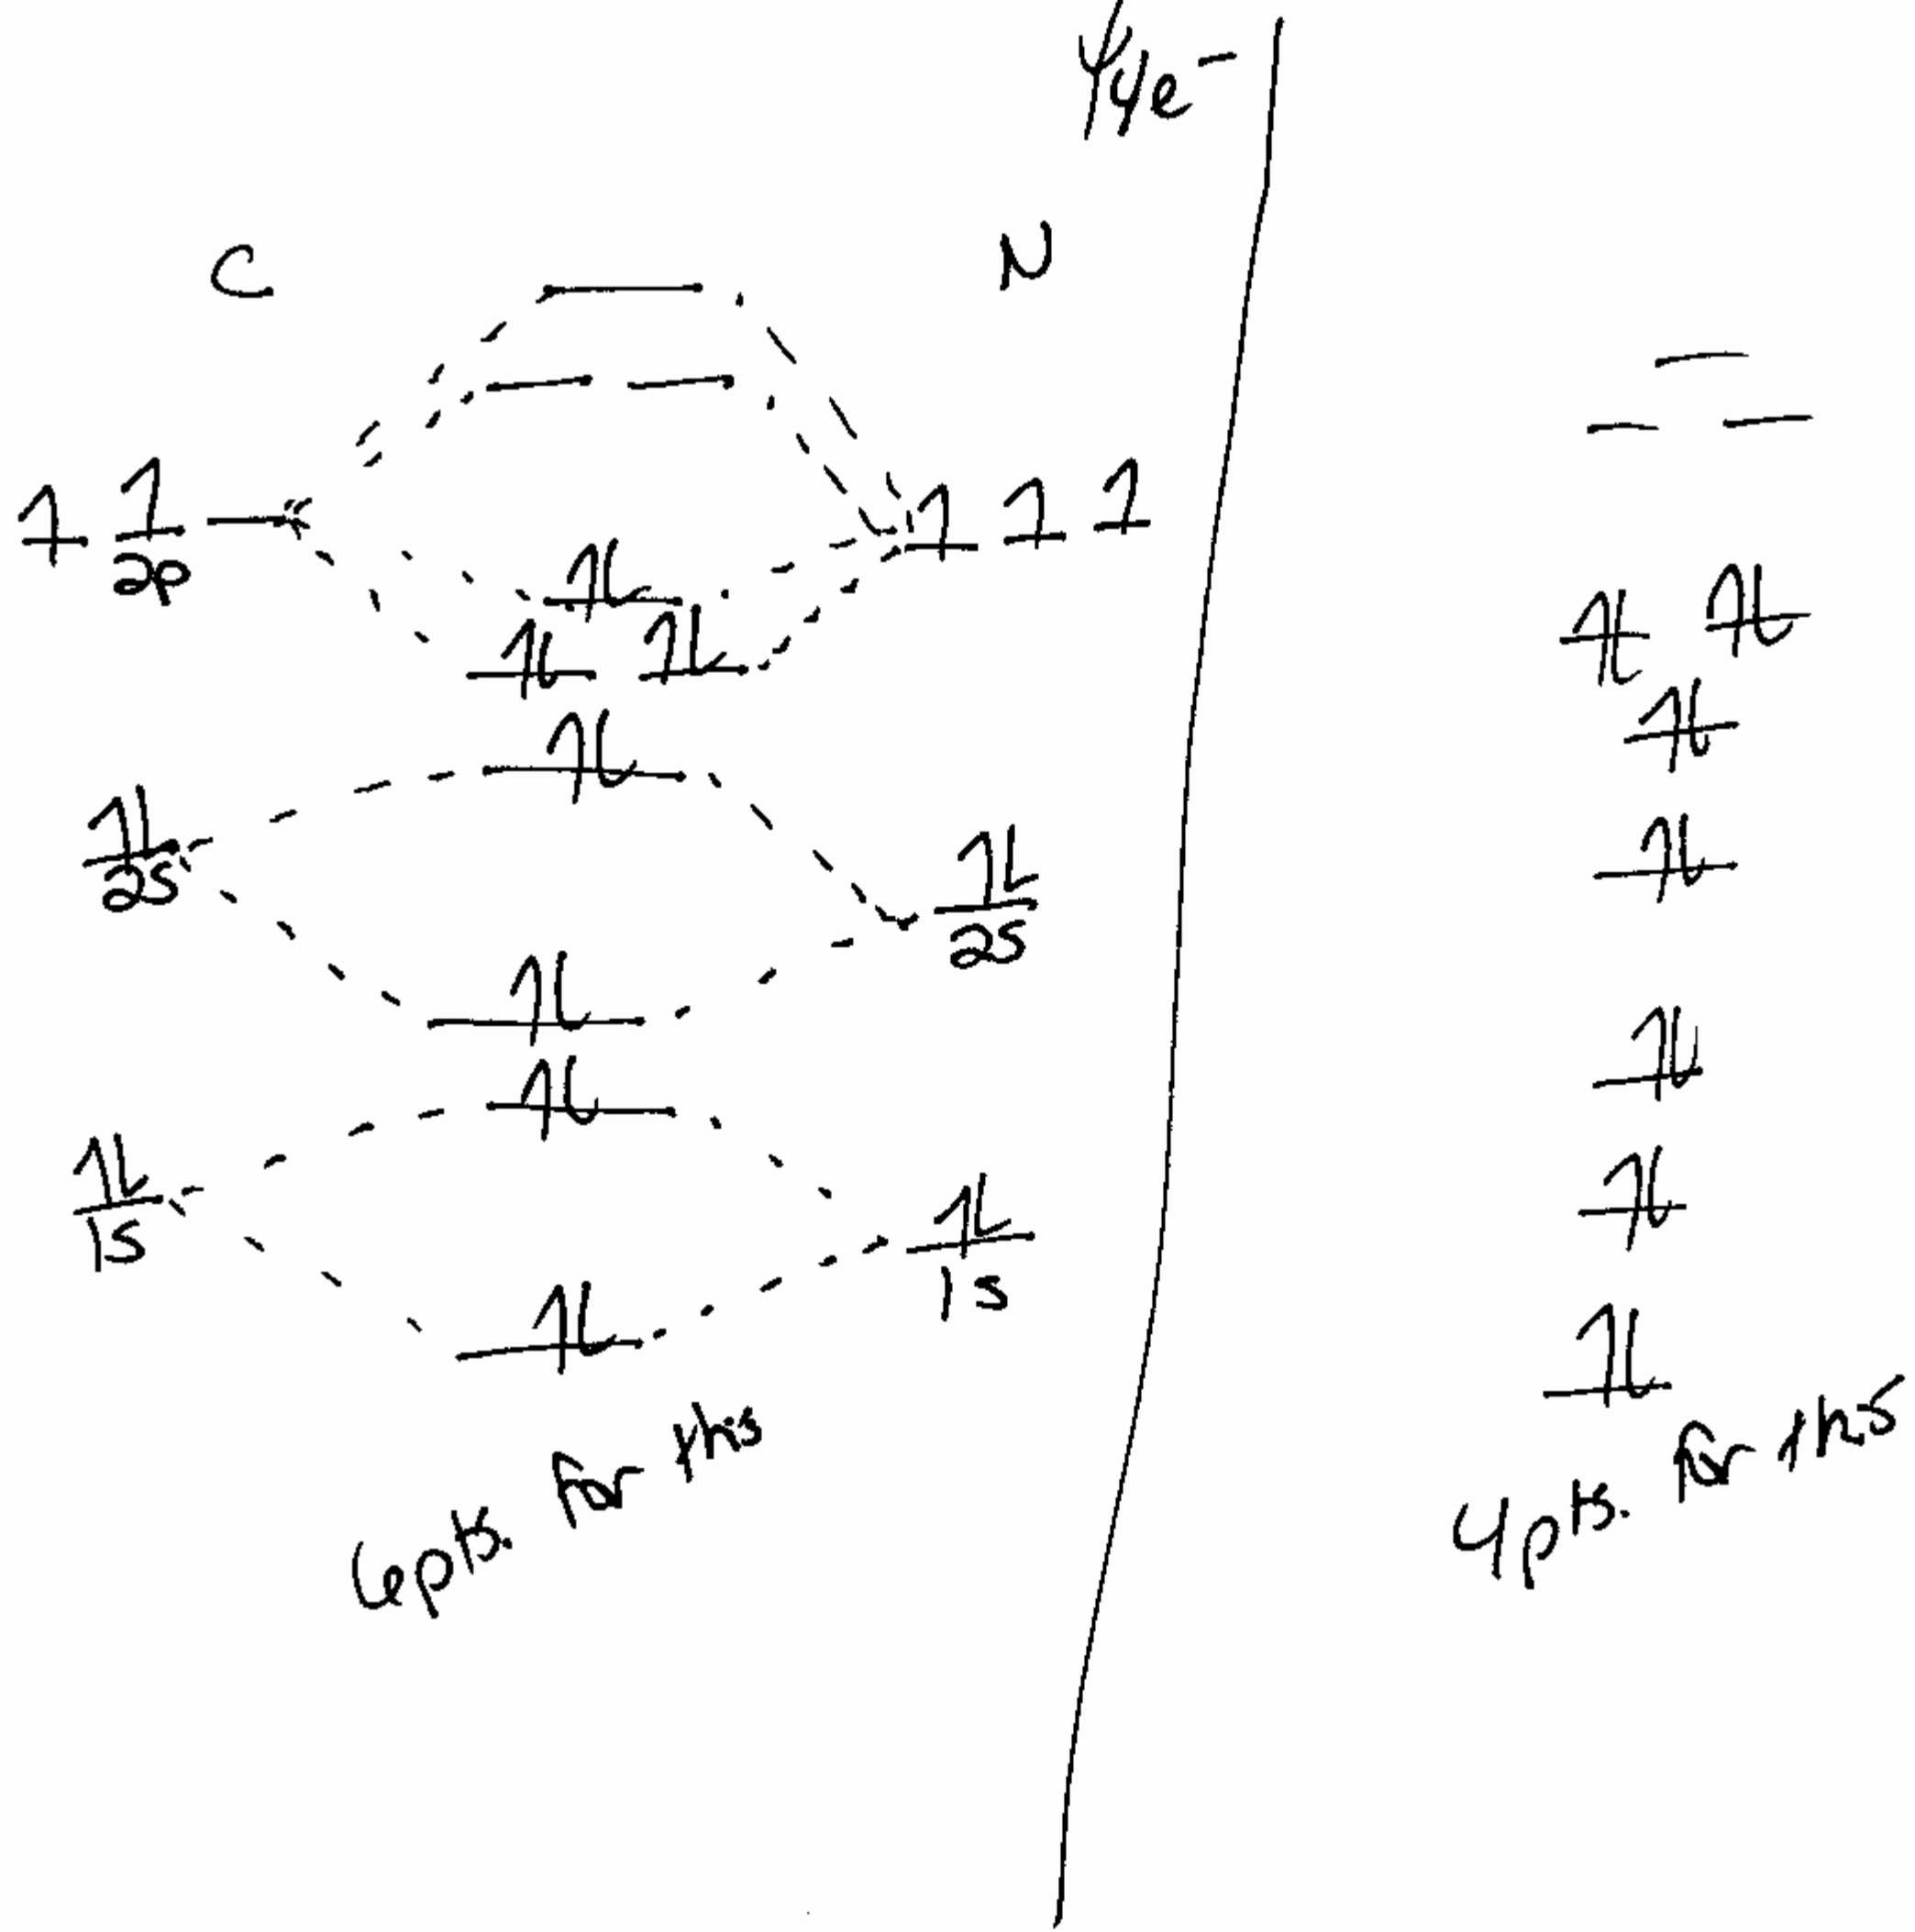 C
N
2p
2s
2s
1s
1s
6pts. for this
4pts. for this